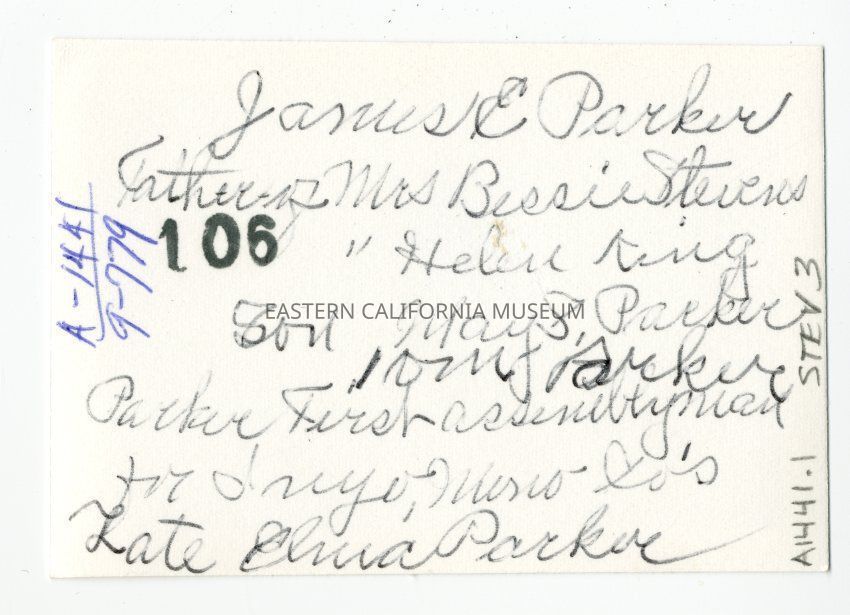 James E Parker
Father of Mrs Bessie Stevens
106
" Helen King
EASTERN CALIFORNIA MUSEUM
Son May Parker
Tom Parker
Parker First assemblyman
for Inyo, Mono Co's
Kate Elma Parker
A-1441
9-779
STEV 3
A1441.1